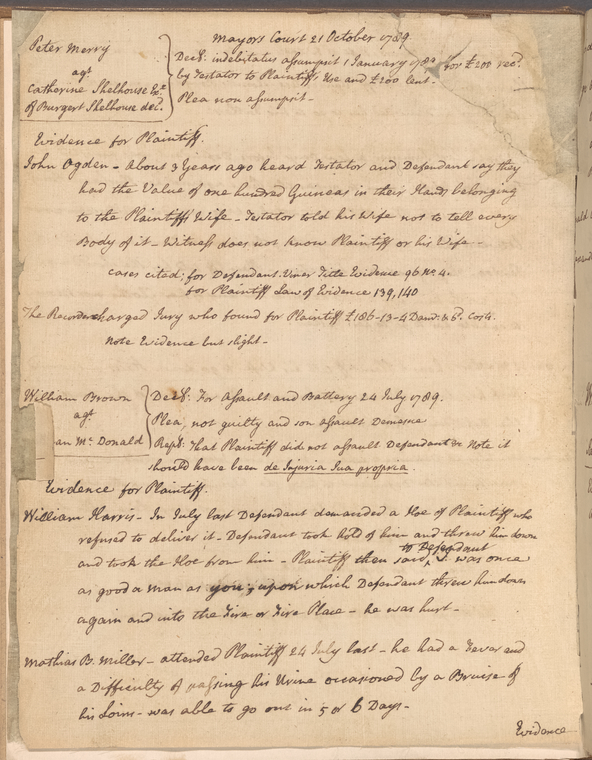 Mayors Court 21 October 1789
Peter Merry
agt
Catherine Shelhouse Ex.x
of Burgert Shelhouse dec.d
Decl: indebitatus assumpsit 1 January 1789 for £200 rec.d
by Testator to Plaintiffs Use and £200 lent.
Plea non assumpsit.
Evidence for Plaintiff.
John Ogden – About 3 Years ago heard Testator and Defendant say they
had the Value of one hundred Guineas in their Hands belonging
to the Plaintiffs Wife – Testator told his Wife not to tell every
Body of it – Witness does not know Plaintiff or his Wife –
Cases cited; for Defendant Viner Title Evidence 96 No 4.
for Plaintiff Law of Evidence 139, 140
The Recorder charged Jury who found for Plaintiff £186-13-4 Dam: & 6d. Costs.
Note Evidence but slight –
William Brown
agt
an Mc Donald
Decl: For Assault and Battery 24 July 1789.
Plea, not guilty and son assault Demesne
Repl: That Plaintiff did not assault Defendant &c Note it
should have been de Injuria Sua propria.
Evidence for Plaintiff.
William Harris – In July last Defendant demanded a Hoe of Plaintiff who
refused to deliver it – Defendant took hold of him and threw him down
and took the Hoe from him – Plaintiff then said to Defendant I was once
as good a man as you; upon which Defendant threw him down
again and into the Fire or Fire Place – he was hurt –
Mathias B. Miller – attended Plaintiff 24 July last – he had a Fever and
a Difficulty of passing his Urine occasioned by a Bruise of
his Loins – was able to go out in 5 or 6 Days –
Evidence